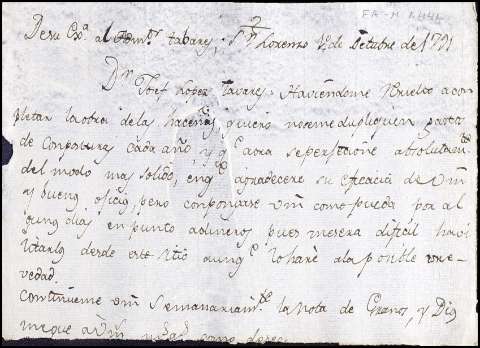 FA-M 1444
2
De su Exª al Admor tabares, Sn Lorenzo 1º de Octubre de 1791
Dn Josef Lopez Tavares. Haviendome resuelto a com
pletar la obra de las haceñas, quiero no se me dupliquen gastos
de Composturas cada año, y qe aora se perfeccione absolutamte
del modo mas solido, en qe agradecere su eficacia de Vm
y sus buenos oficios, pero compongase Vm como pueda por al
gunos dias en punto a dineros pues me sera dificil havi
litarlo desde este sitio aunqe lo hare a la posible bre
vedad.
Continueme Vm semanariamte la Nota de Granos, y Dios